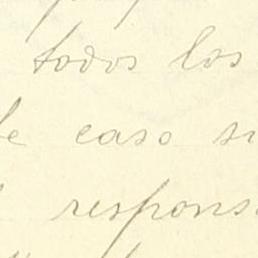 todos los
caso
respons